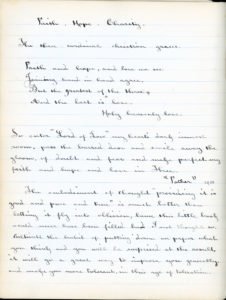 Faith. Hope. Charity.
The three cardinal christian graces.
Faith and hope, and love we see
Joining hand in hand agree,
But the greatest of the three,
And the best is love.
Holy heavenly love.
So enter "Lord of Love" my heart's dark inmost
room, pass the barred door and smile away the
gloom, of doubt and fear and make perfect my
faith and hope and love in Thee.
The embodiment of thought "providing it is
good and pure and true" is much better than
letting it fly into oblivion, hence this little book
could never have been filled had I not
the habit of putting down on paper what
you think, and you will be surprised at the result,
it will go a great way to improve you generally
and make you more tolerant, in this age of